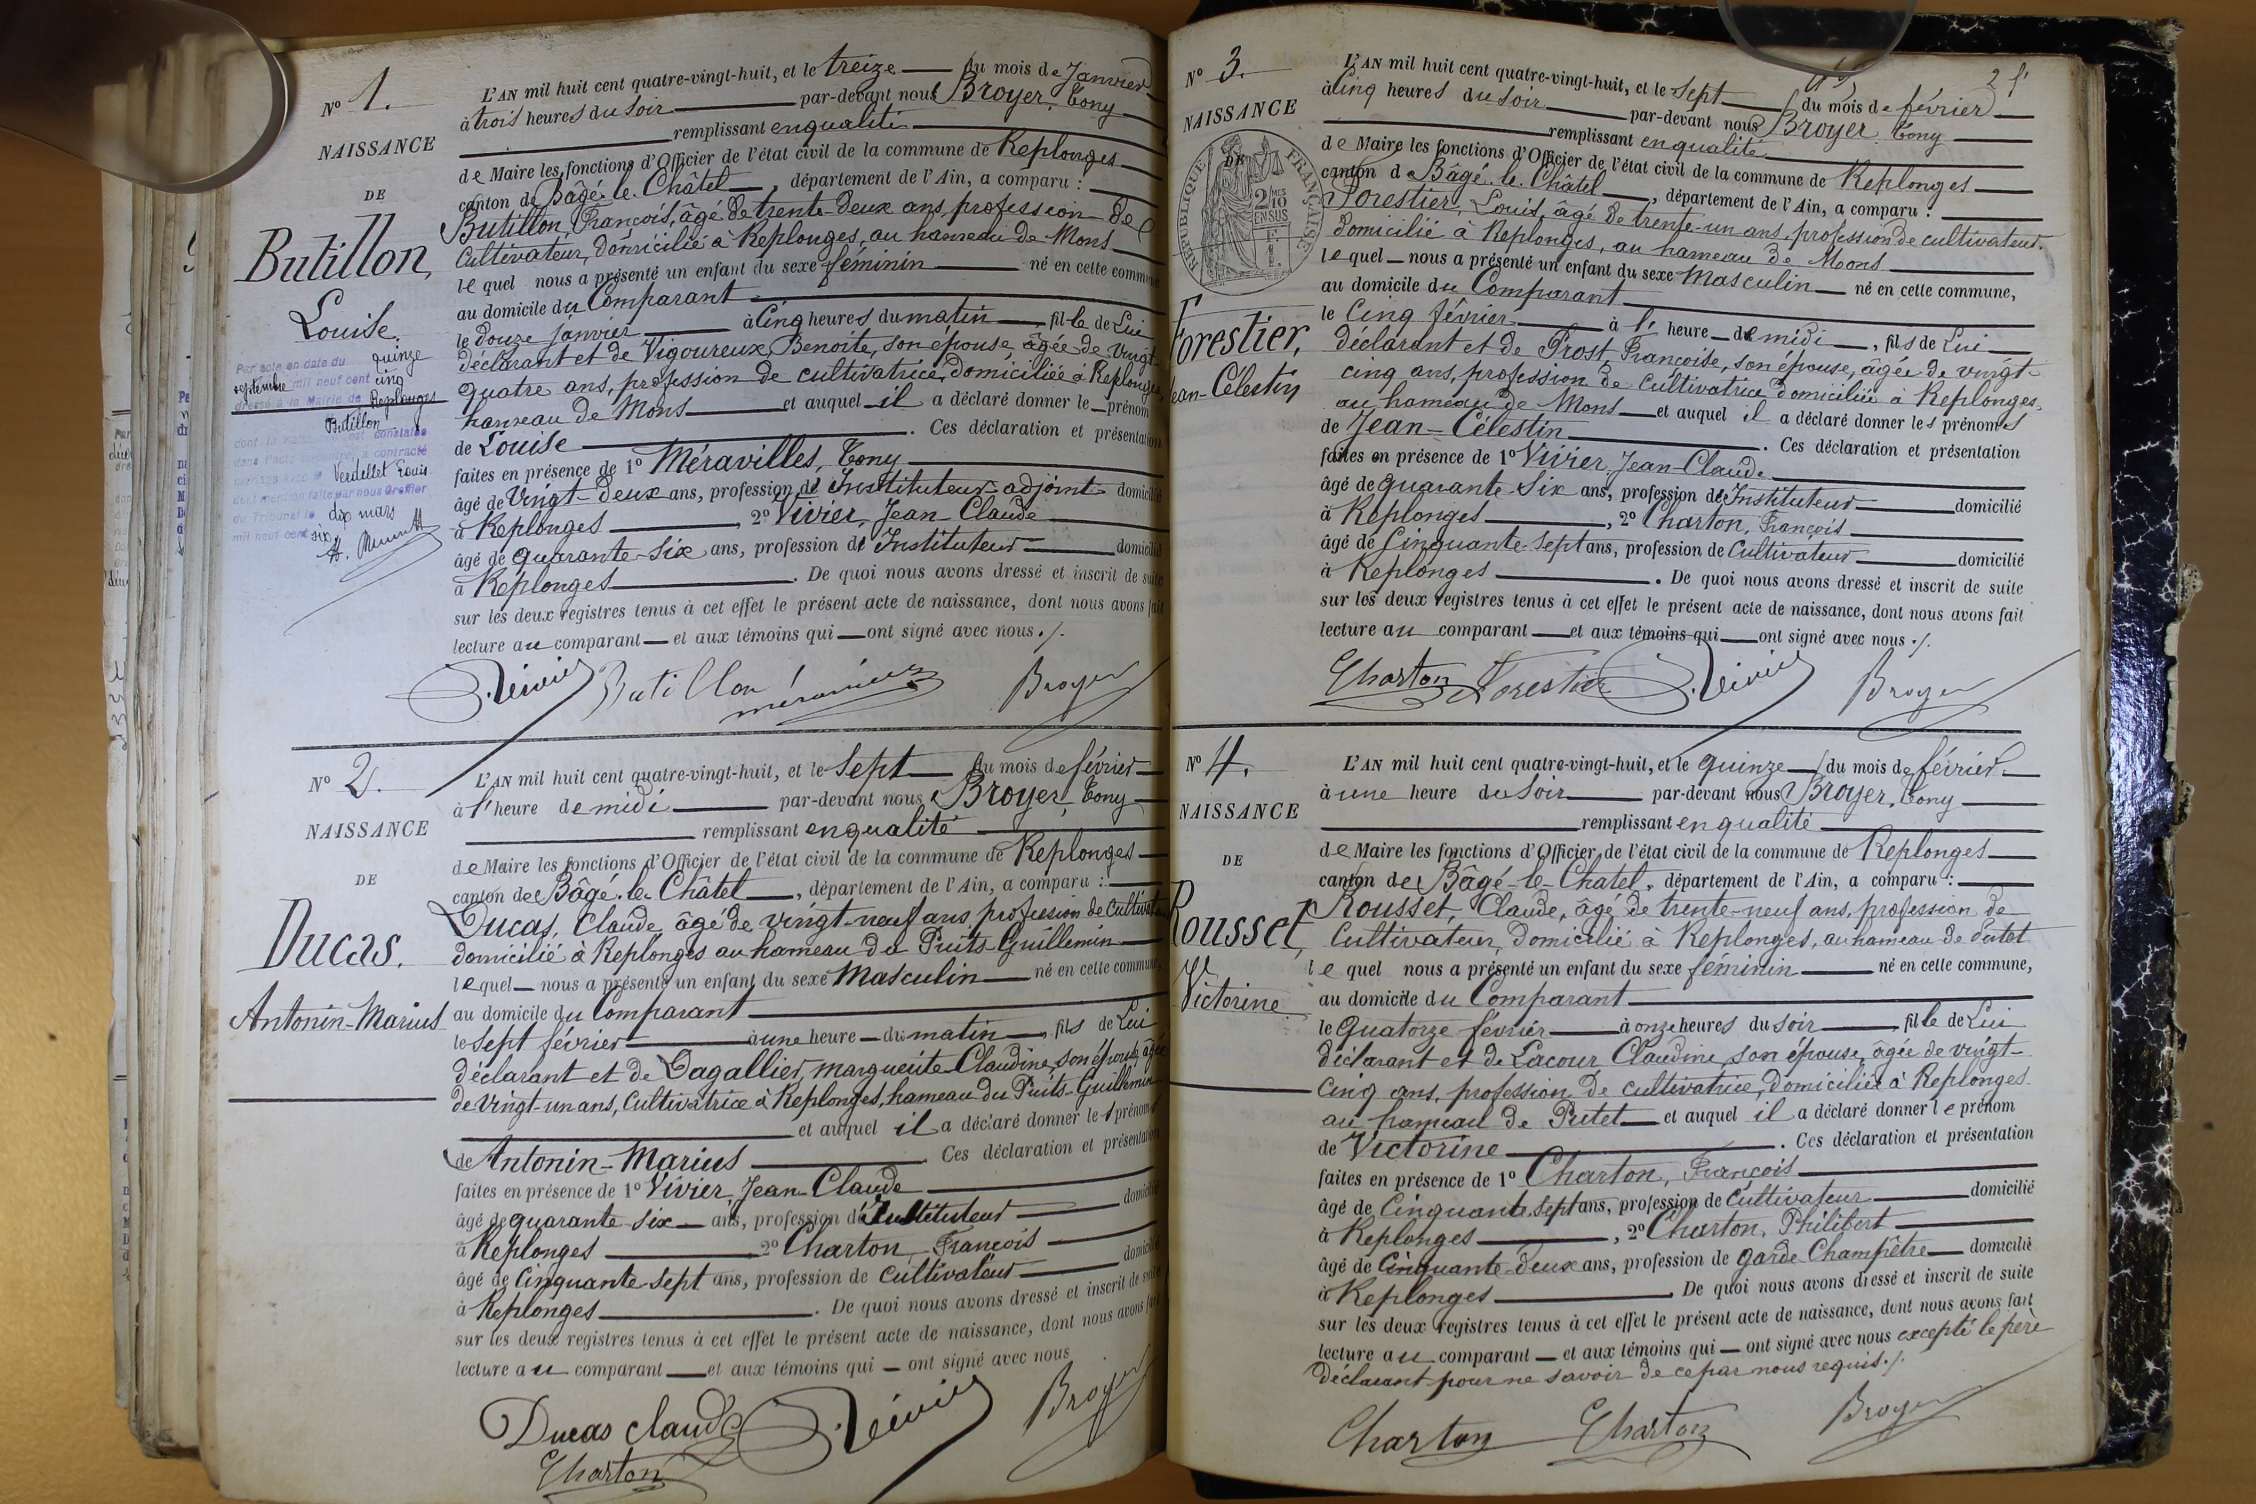 N° 1.
NAISSANCE
DE
Butillon,
Louise.
Par acte en date du quinze
septembre mil neuf cent cinq
dressé à la Mairie de Replonges
Butillon
dont la est constatée
dans l'acte a contracté
mariage avec Verdellet Louis
dont mention faite par nous Greffier
du Tribunal le dix mars
mil neuf cent six.
L'AN mil huit cent quatre-vingt-huit, et le treize du mois de Janvier
à trois heures du soir par-devant nous Broyer, Tony
remplissant en qualité
de Maire les fonctions d'Officier de l'état civil de la commune de Replonges
canton de Bâgé-le-Châtel, département de l'Ain, a comparu :
Butillon, François, âgé de trente-deux ans, profession de
Cultivateur, domicilié à Replonges, au hameau de Mons
lequel nous a présenté un enfant du sexe féminin né en cette commune
au domicile du Comparant
le douze Janvier à Cinq heures du matin fille de Lui
déclarant et de Vigoureux, Benoite, son épouse, âgée de vingt
quatre ans, profession de cultivatrice, domiciliée à Replonges
hameau de Mons et auquel il a déclaré donner le prénom
de Louise. Ces déclaration et présentation
faites en présence de 1° Méravilles, Tony
âgé de Vingt-deux ans, profession d'Instituteur-adjoint domicilié
à Replonges, 2° Vivier, Jean-Claude
âgé de quarante-six ans, profession d'Instituteur domicilié
à Replonges. De quoi nous avons dressé et inscrit de suite
sur les deux registres tenus à cet effet le présent acte de naissance, dont nous avons fait
lecture au comparant et aux témoins qui ont signé avec nous ./.
J. Vivier Butillon Broyer
N° 2.
NAISSANCE
DE
Ducas.
Antonin-Marius
L'AN mil huit cent quatre-vingt-huit, et le Sept du mois de février
à l'heure de midi par-devant nous Broyer, Tony
remplissant en qualité
de Maire les fonctions d'Officier de l'état civil de la commune de Replonges
canton de Bâgé-le-Châtel, département de l'Ain, a comparu :
Ducas, Claude, âgé de vingt-neuf ans profession de cultivateur
domicilié à Replonges au hameau du Puits-Guillemin
lequel nous a présenté un enfant du sexe Masculin né en cette commune,
au domicile du Comparant
le Sept février à une heure du matin, fils de Lui
déclarant et de Dagallier, marguerite Claudine, son épouse âgée
de vingt-un ans, Cultivatrice à Replonges, hameau du Puits-Guillemin
et auquel il a déclaré donner les prénoms
de Antonin-Marius. Ces déclaration et présentation
faites en présence de 1° Vivier, Jean-Claude
âgé de quarante-six ans, profession d'Instituteur domicilié
à Replonges 2° Charton, François
âgé de Cinquante-sept ans, profession de cultivateur domicilié
à Replonges. De quoi nous avons dressé et inscrit de suite
sur les deux registres tenus à cet effet le présent acte de naissance, dont nous avons fait
lecture au comparant et aux témoins qui ont signé avec nous
Ducas claude J. Vivier Broyer
Charton
2 f^t
N° 3.
NAISSANCE
DE
RÉPUBLIQUE FRANÇAISE
2 MES
10
EN SUS
Forestier,
Jean-Célestin
L'AN mil huit cent quatre-vingt-huit, et le Sept du mois de février
à Cinq heures du soir par-devant nous Broyer, Tony
remplissant en qualité
de Maire les fonctions d'Officier de l'état civil de la commune de Replonges
canton d Bâgé-le-Châtel, département de l'Ain, a comparu :
Forestier, Louis, âgé de trente-un ans, profession de cultivateur.
domicilié à Replonges, au hameau de Mons
lequel nous a présenté un enfant du sexe Masculin né en cette commune,
au domicile du Comparant
le Cinq février à l' heure de midi, fils de Lui
déclarant et de Prost, Françoise, son épouse, âgée de vingt-
cinq ans, profession de Cultivatrice, domiciliée à Replonges,
au hameau de Mons et auquel il a déclaré donner les prénoms
de Jean-Célestin. Ces déclaration et présentation
faites en présence de 1° Vivier, Jean-Claude
âgé de quarante-six ans, profession d'Instituteur domicilié
à Replonges, 2° Charton, François
âgé de Cinquante-Sept ans, profession de Cultivateur domicilié
à Replonges. De quoi nous avons dressé et inscrit de suite
sur les deux registres tenus à cet effet le présent acte de naissance, dont nous avons fait
lecture au comparant et aux témoins qui ont signé avec nous ./.
Charton Forestier J. Vivier Broyer
N° 4.
NAISSANCE
DE
Rousset,
Victorine
L'AN mil huit cent quatre-vingt-huit, et le quinze du mois de février
à une heure du Soir par-devant nous Broyer, Tony
remplissant en qualité
de Maire les fonctions d'Officier de l'état civil de la commune de Replonges
canton de Bâgé-le-Chatel, département de l'Ain, a comparu :
Rousset, Claude, âgé de trente-neuf ans, profession de
Cultivateur, domicilié à Replonges, au hameau de Putet
lequel nous a présenté un enfant du sexe féminin né en cette commune,
au domicile du Comparant
le Quatorze février à onze heures du soir, fille de Lui
déclarant et de Lacour Claudine, son épouse, âgée de vingt-
cinq ans, profession de cultivatrice, domiciliée à Replonges
au hameau de Putet et auquel il a déclaré donner le prénom
de Victorine. Ces déclaration et présentation
faites en présence de 1° Charton, François
âgé de Cinquante-Sept ans, profession de Cultivateur domicilié
à Replonges, 2° Charton, Philibert
âgé de Cinquante-deux ans, profession de garde Champêtre domicilié
à Replonges. De quoi nous avons dressé et inscrit de suite
sur les deux registres tenus à cet effet le présent acte de naissance, dont nous avons fait
lecture au comparant et aux témoins qui ont signé avec nous excepté le père
déclarant pour ne savoir de ce par nous requis ./.
Charton Charton Broyer